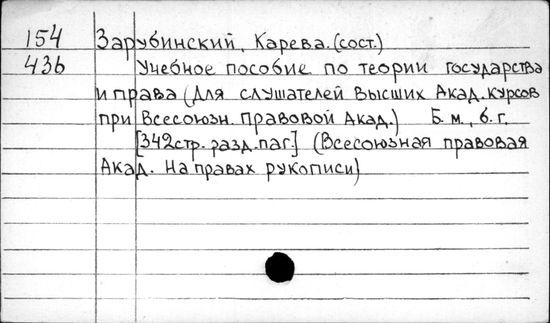 154 Зарубинский, Карева. (сост.)
436 Учебное пособие по теории государства
и права (Для слушателей Высших Акад. курсов
при Всесоюзн. Правовой Акад.) Б. м., б. г.
[342стр. разд. паг.] (Всесоюзная правовая
Акад. На правах рукописи)